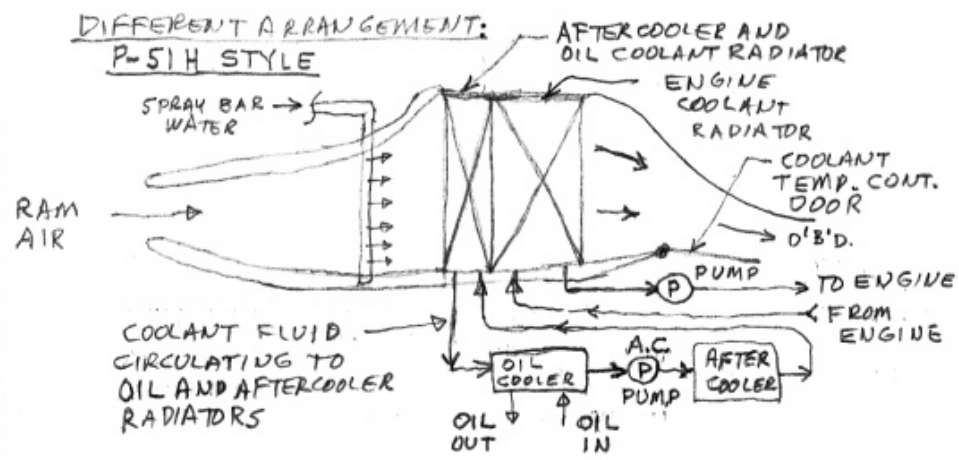 DIFFERENT ARRANGEMENT:
P-51H STYLE
AFTERCOOLER AND
OIL COOLANT RADIATOR
ENGINE
COOLANT
RADIATOR
SPRAY BAR
WATER
COOLANT
TEMP. CONT.
DOOR
RAM
AIR
O'B'D.
PUMP
P
TO ENGINE
FROM
ENGINE
COOLANT FLUID
CIRCULATING TO
OIL AND AFTERCOOLER
RADIATORS
OIL
COOLER
A.C.
P
PUMP
AFTER
COOLER
OIL
OUT
OIL
IN